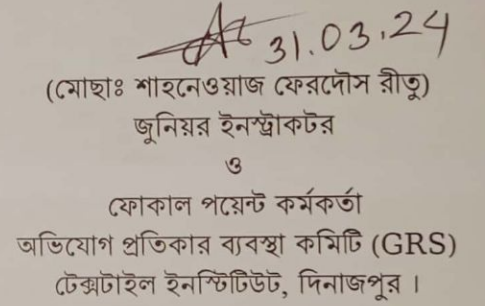 31.03.24
(মোছাঃ শাহনেওয়াজ ফেরদৌস রীতু)
জুনিয়র ইনস্ট্রাকটর
ও
ফোকাল পয়েন্ট কর্মকর্তা
অভিযোগ প্রতিকার ব্যবস্থা কমিটি (GRS)
টেক্সটাইল ইনস্টিটিউট, দিনাজপুর।